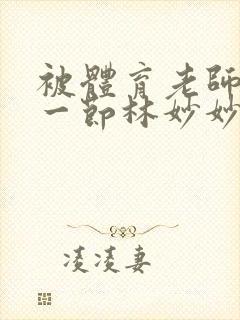 被體育老師
一節林妙妙
凌凌妻